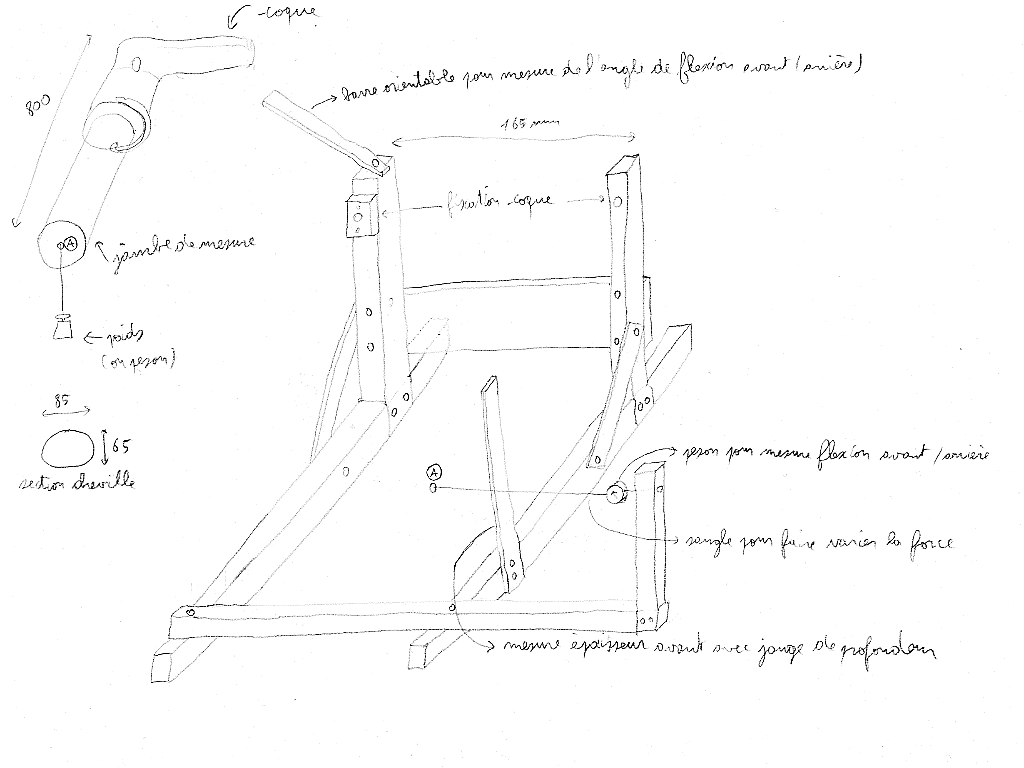 coque
800
barre orientable pour mesure de l'angle de flexion avant/arrière)
165 mm
fixation coque
A
jambe de mesure
poids
(ou peson)
85
65
section cheville
A
peson pour mesure flexion avant/arrière
sangle pour faire varier la force
mesure épaisseur avant avec jauge de profondeur